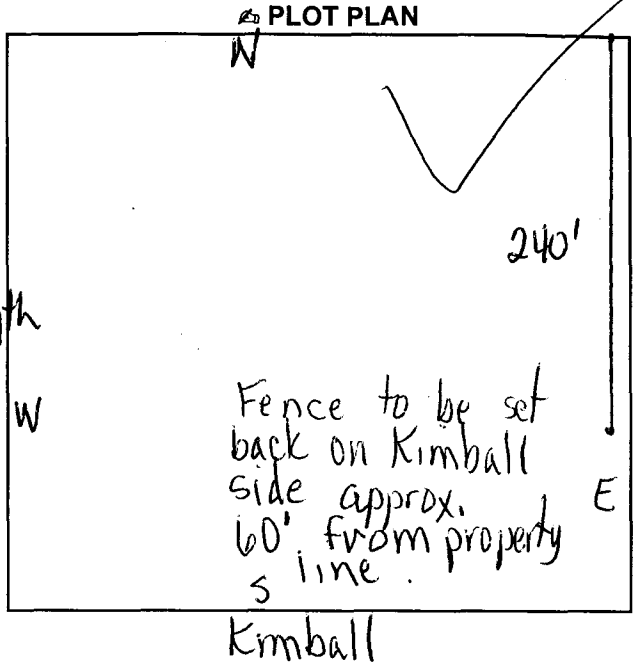 PLOT PLAN
N
240'
th
W
Fence to be set
back on Kimball
side approx.
60' from property
line.
E
S
Kimball